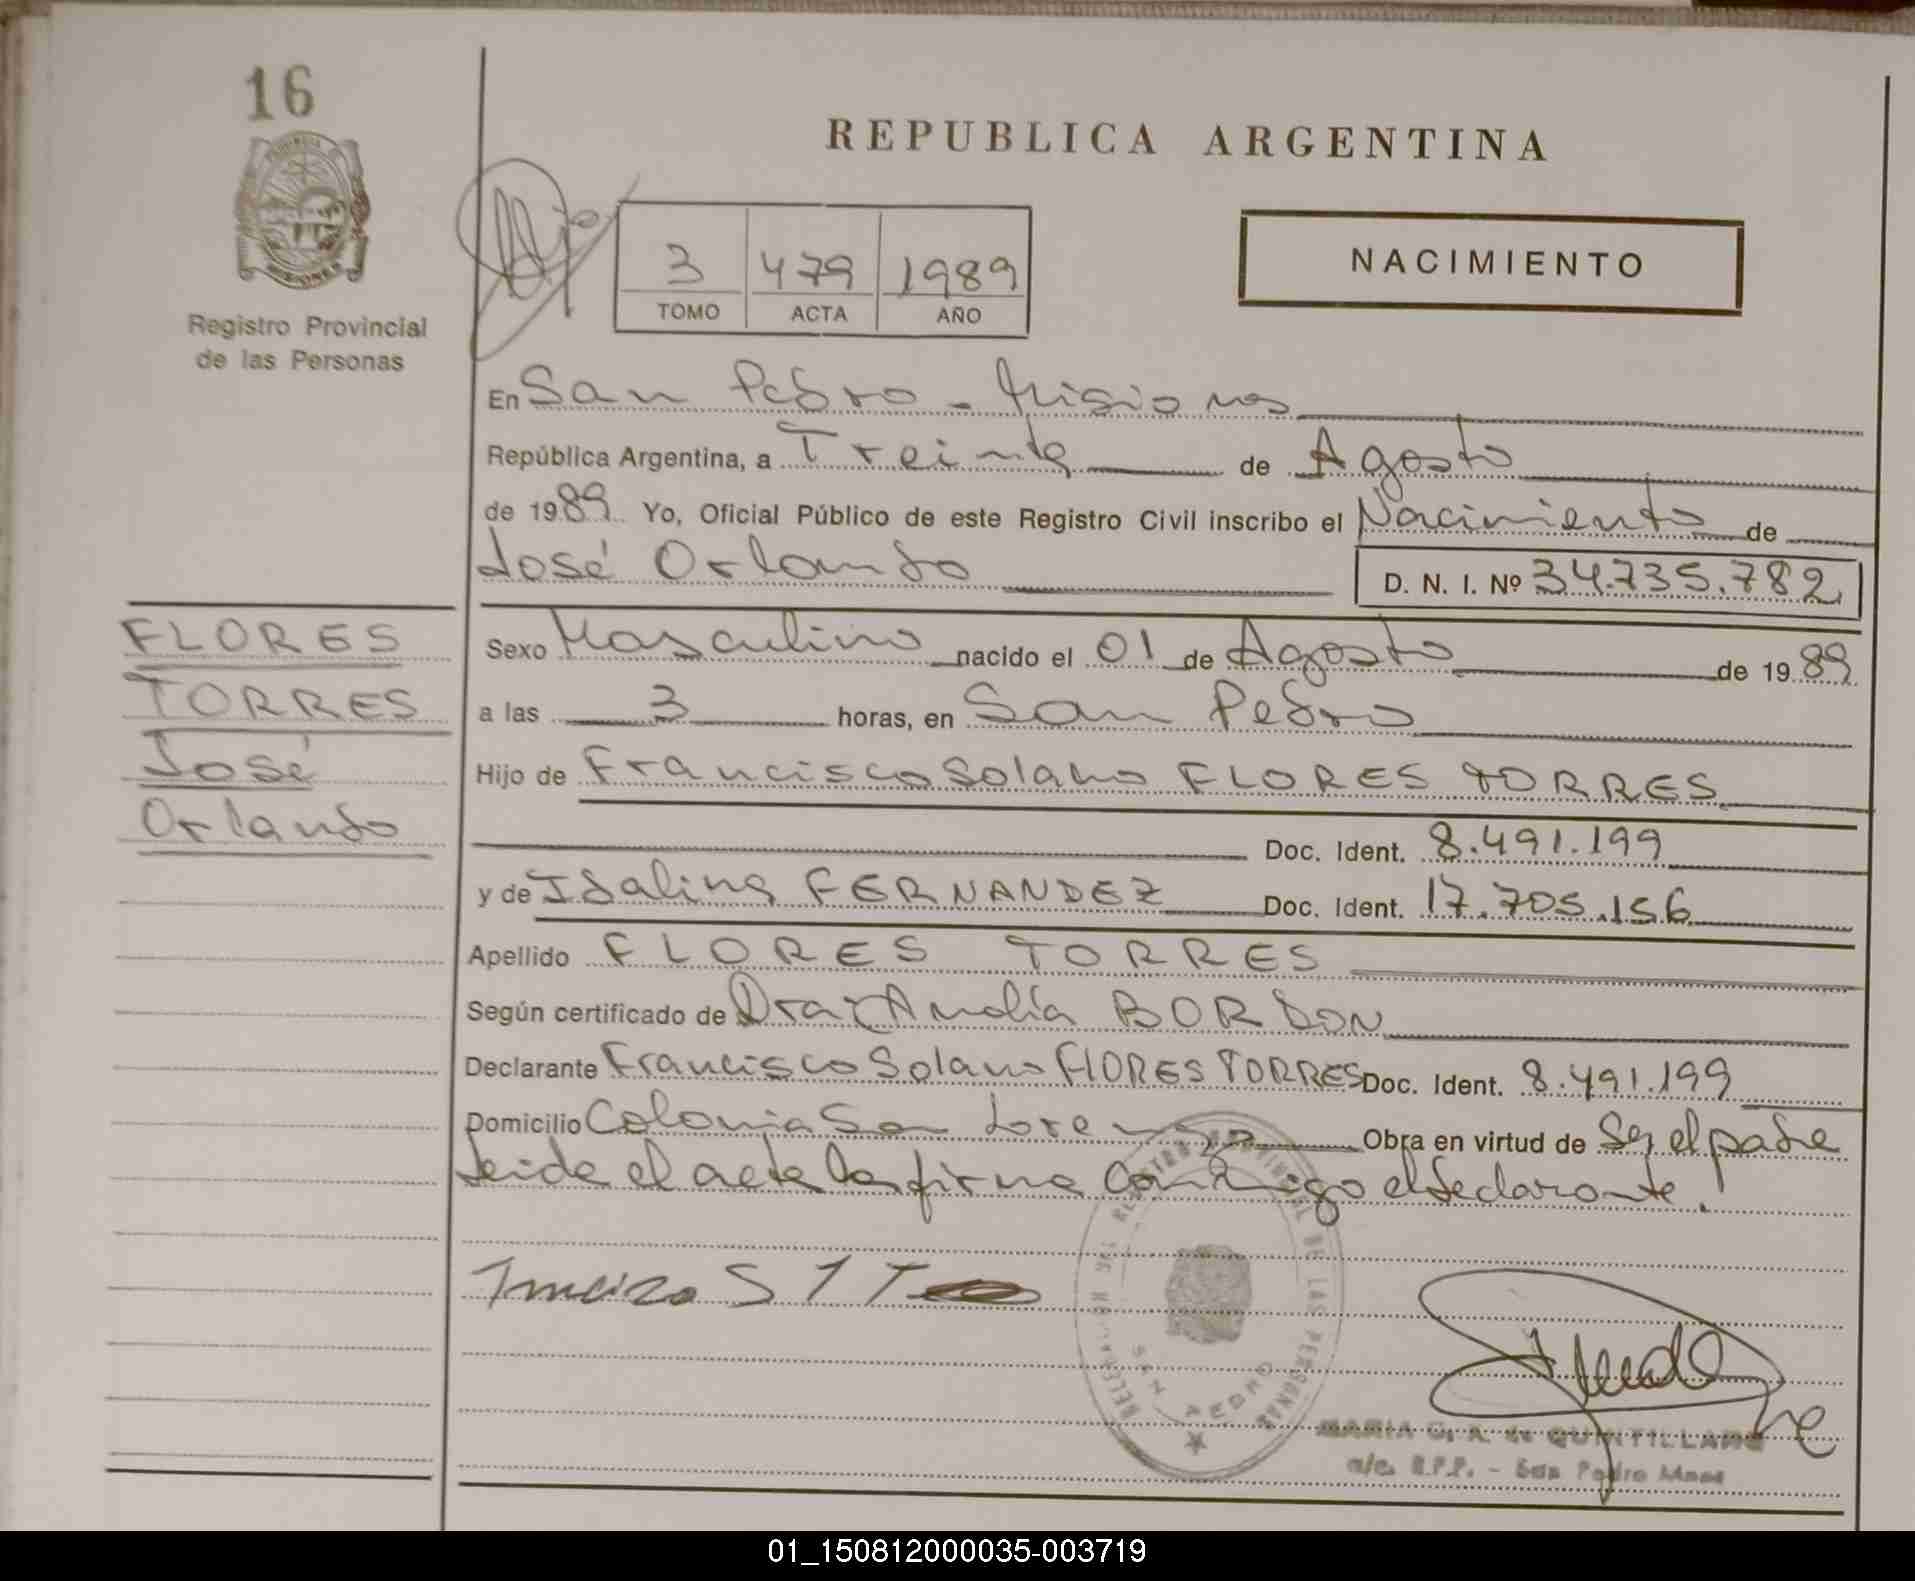 16
PROVINCIA
MISIONES
Registro Provincial
de las Personas
REPUBLICA ARGENTINA
NACIMIENTO
3 479 1989
TOMO ACTA AÑO
En San Pedro - Misiones
República Argentina, a Treinta de Agosto
de 1989 Yo, Oficial Público de este Registro Civil inscribo el Nacimiento de
José Orlando D. N. I. Nº 34.735.782
FLORES
TORRES
José
Orlando
Sexo Masculino nacido el 01 de Agosto de 1989
a las 3 horas, en San Pedro
Hijo de Francisco Solano FLORES TORRES
Doc. Ident. 8.491.199
y de Idalina FERNANDEZ Doc. Ident. 17.705.156
Apellido FLORES TORRES
Según certificado de Dra. Amalia BORDON
Declarante Francisco Solano FLORES TORRES Doc. Ident. 8.491.199
Domicilio Colonia San Lorenzo Obra en virtud de Ser el padre
Leida el acta la firma conmigo el declarante.
REGISTRO PROVINCIAL DE LAS PERSONAS
SAN PEDRO
MARIA G. A. de QUINTILLANE
a/c. R.P.P. - San Pedro Mnes
01_150812000035-003719